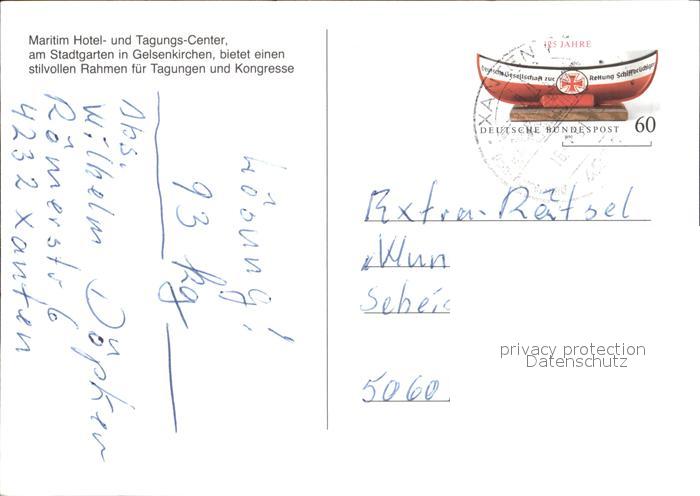 Maritim Hotel- und Tagungs-Center,
am Stadtgarten in Gelsenkirchen, bietet einen
stilvollen Rahmen für Tagungen und Kongresse
125 JAHRE
Deutsche Gesellschaft zur Rettung Schiffbrüchiger
DEUTSCHE BUNDESPOST 60
XANTEN
Lösung!
93 kg
Abs.
Wilhelm Döpker
Römerstr 6
4232 Xanten
Extra-Rätsel
"Mun
Schei
5060
privacy protection
Datenschutz